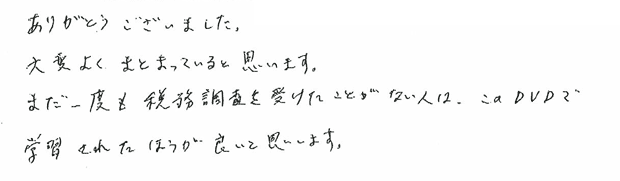 ありがとうございました。
大変よくまとまっていると思います。
まだ一度も税務調査を受けたことがない人は、このDVDで
学習されたほうが良いと思います。